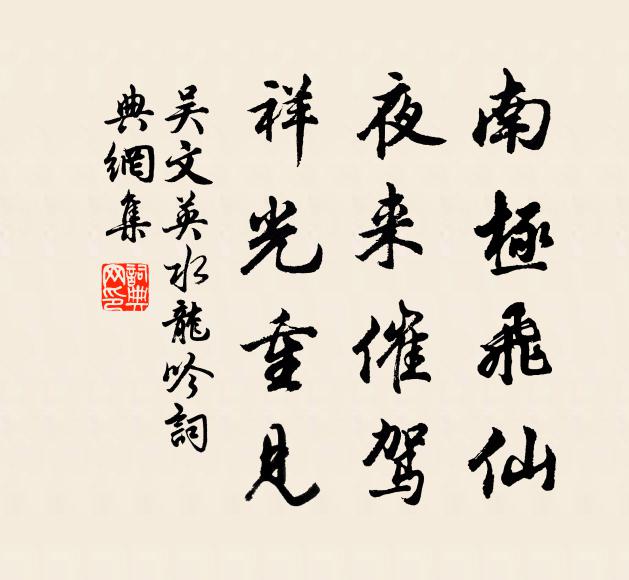 南極飛仙
夜来催駕
祥光重見
吳文英水龍吟詞
典網集
詞典
网印